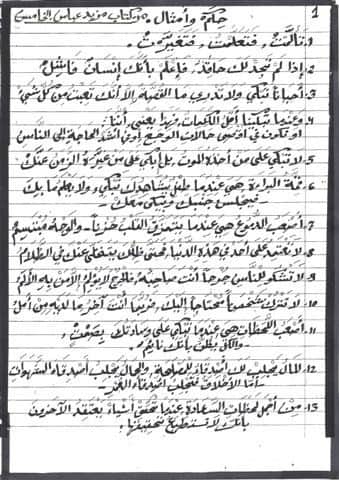 1
حكم وأمثال من كتاب مزيد عباس الخامس
1. تألمت، فتعلمت، فتغيرت.
2. إذا لم تجد لك حاقد، فاعلم بأنك إنسان فاشل
3. أحياناً تبكي ولا تدري ما القضية إلا أنك تعبت من كل شيء
4. وعندما تبكتنا أجمل الكلمات، فهذا يعني أننا
أو نكون في أقصى حالات الوجع، أو في أشد الحاجة إلى الناس
5. لا تبكي على من أخذه الموت، بل إبكي على من غيره الزمن عنك
6. قمة البراءة هي عندما طفل يشاهدك تبكي، ولا يعلم ما بك
- فيجلس جنبك ويبكي معك -
7. أصعب الدموع هي عندما يتمزق القلب حزناً - والوجه مبتسم
8. لا تعتمد على أحد في هذه الدنيا، فحتى ظلك يتخلى عنك في الظلام
9. لا تشكو للناس جرحاً أنت صاحبه، فالجرح لا يؤلم إلا من به الألم
10. لا تترك شخصاً محتاجاً إليك، فربما أنت آخر ما لديه من أمل
11. أصعب اللحظات هي عندما تبكي على وسادتك بصمت،
- والكل يظن بأنك نائم -
12. المال يجلب لك أصدقاء المصلحة، والجمال يجلب أصدقاء الشهوات
- أما الأخلاق فتجلب أصدقاء العمر -
13. من أجمل لحظات السعادة عندما تحقق أشياء يعتقد الآخرين
بأنك لا تستطيع تحقيقها